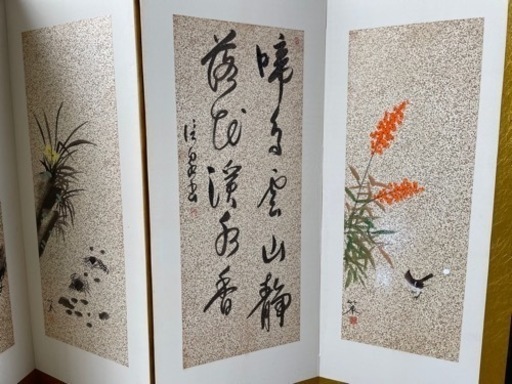 啼鳥雲山静
落花渓水香